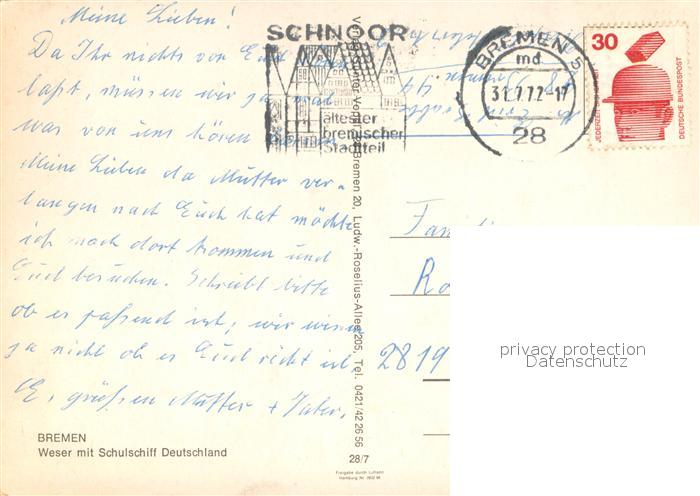 Meine Lieben!
Da Ihr nichts von Euch
laßt, müssen wir ja mal
was von uns hören
Meine Lieben da Mutter ver-
langen nach Euch hat möchte
ich nach dort kommen und
Euch besuchen. Schreibt bitte
ob es passend ist, wir wissen
ja nicht ob es Euch recht ist.
Es grüßen Mutter + Vater.
BREMEN
Weser mit Schulschiff Deutschland
SCHNOOR
ältester
bremischer
Stadtteil
BREMEN 5
md
31.7.72-17
28
30
JEDERZEIT
DEUTSCHE BUNDESPOST
Bremen 20, Ludw.-Roselius-Allee 205, Tel. 0421/42 26 56
28/7
Freigabe durch Luftamt
Fam
Ro
2819
privacy protection
Datenschutz